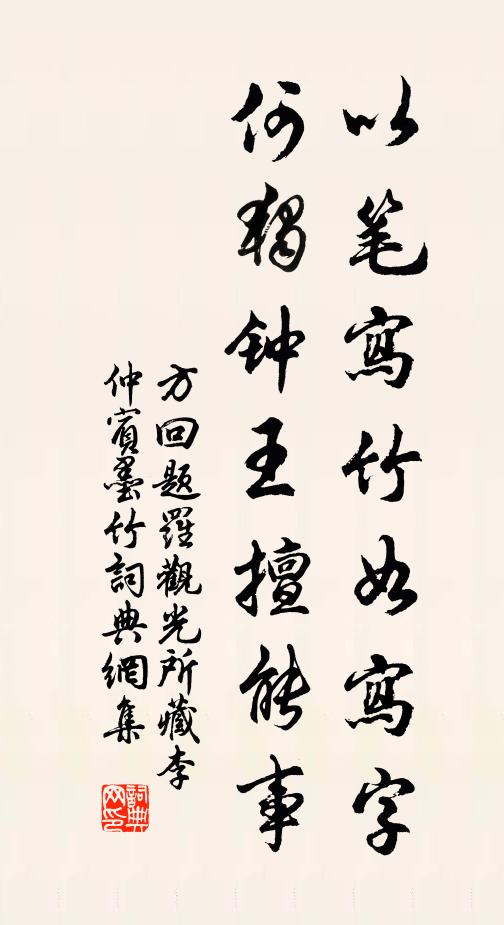 以笔寫竹如寫字
何独钟王擅能事
方回题羅觀光所藏李
仲賓墨竹詞典網集
詞典网印